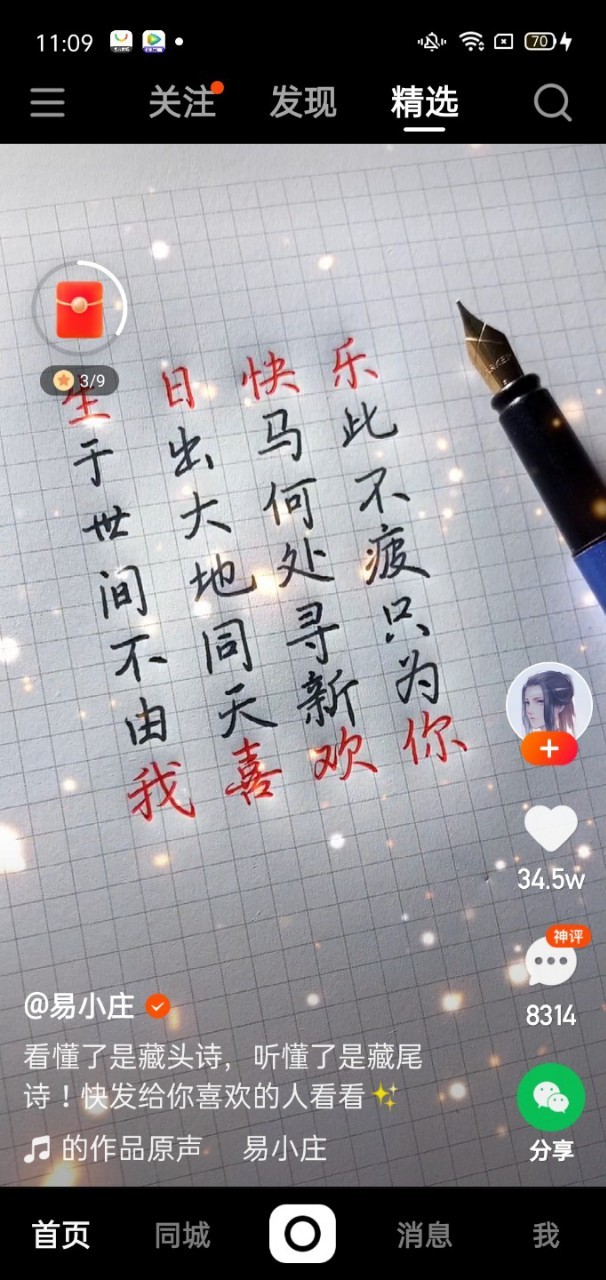 11:09
70
关注
发现
精选
3/9
生日快乐
于出马此
世大何不
间地处疲
不同寻只
由天新为
我喜欢你
34.5w
神评
8314
@易小庄
看懂了是藏头诗，听懂了是藏尾
诗！快发给你喜欢的人看看✨
的作品原声 易小庄
分享
首页
同城
消息
我